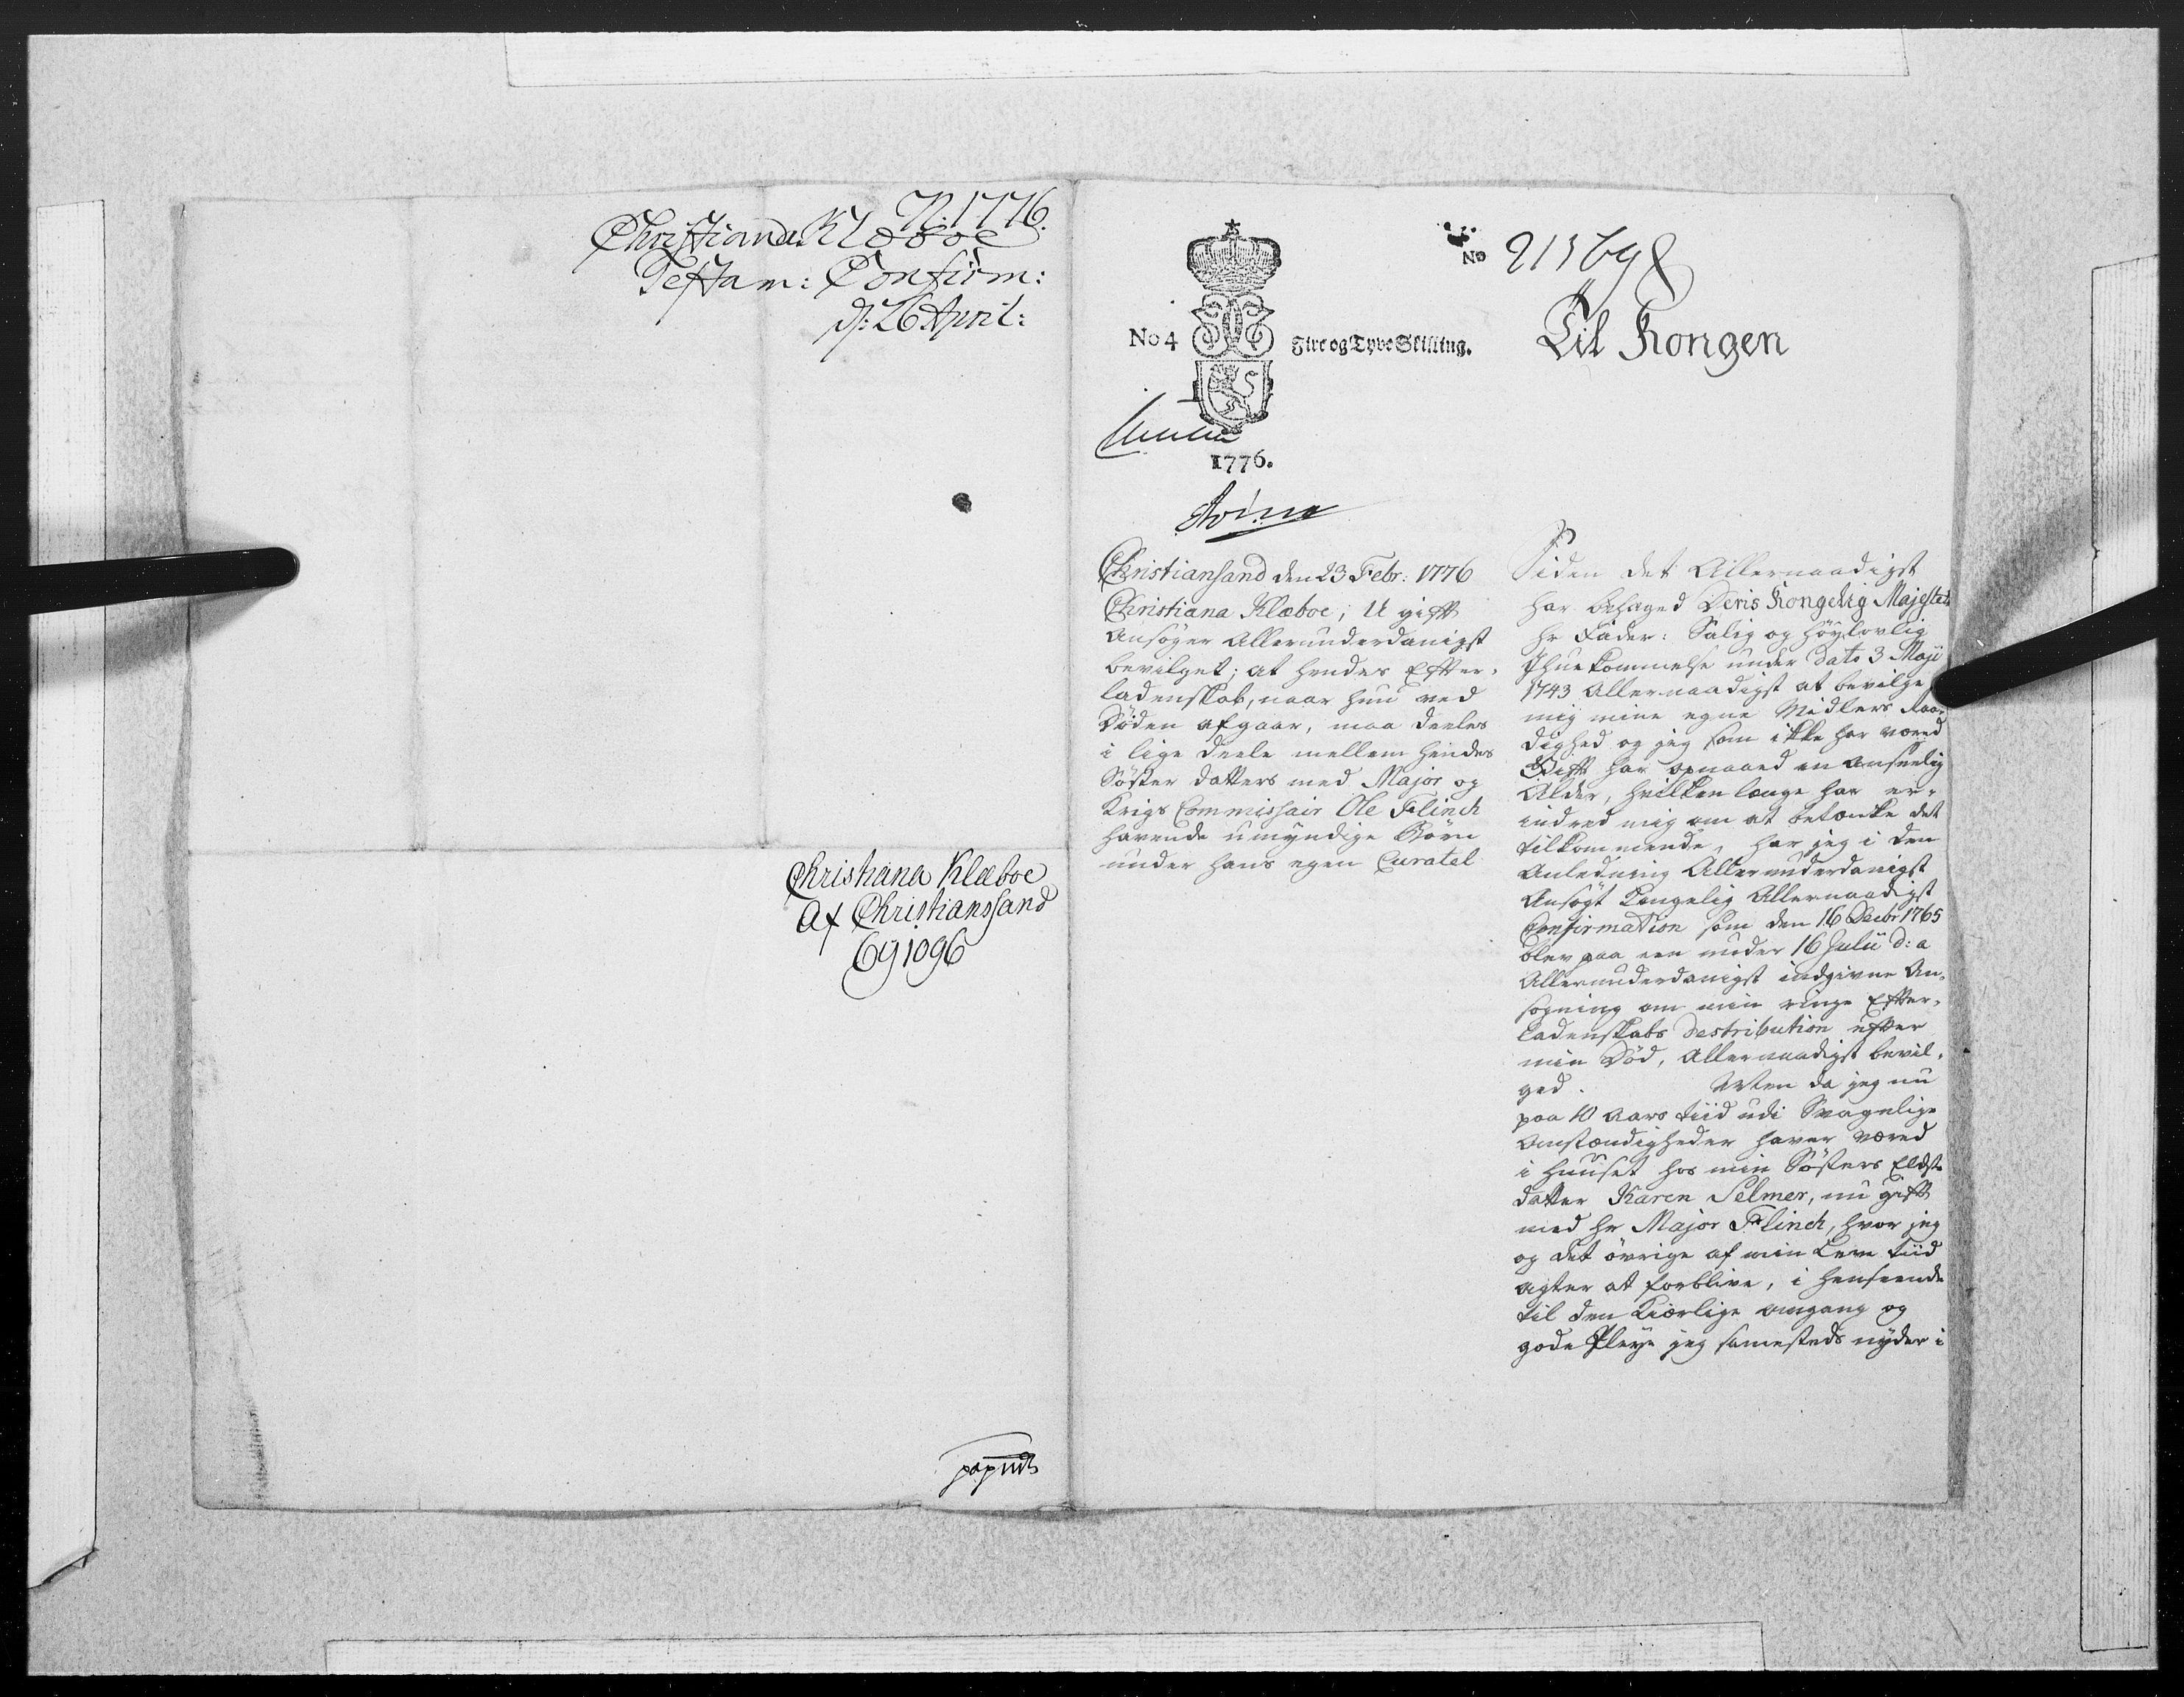 N: 1776.
Christiana Klæboe
Testam: Confirm:
d: 26 April:
Christiana Klæboe
Af Christianssand
691096
No 4
Fire og Tyve Skilling.
1776.
No 
Til Kongen
Christiansand den 23 Febr: 1776
Christiana Klæboe, U gift
Ansøger Allerunderdanigst
bevilget; at hendes Efter-
ladenskab, naar hun ved
Døden afgaar, maa deeles
i lige deele mellem hendes
Søster datters med Major og
Krigs Commissair Ole Flinch
havende umyndige Børn
under hans egen Curatel
Siden det Allernaadigst
har behaged Deris Kongelig Majestets
Hr Fader: Salig og høylovlig
Ihukommelse under Dato 3 Maji
1743 Allernaadigst at bevilge
mig mine egne Midlers Raa-
dighed og jeg som ikke har væred
Gift har opnaaed en anseelig
Alder, hvilken længe har er-
indred mig om at betænke det
tilkommende, har jeg i den
Anledning Allerunderdanigst
Ansøgt Kongelig Allernaadigst
Confirmation som den 16 Decbr 1765
blev paa een under 16 Julii d: a
Allerunderdanigst indgivne An-
søgning om min ringe Efter-
ladenskabs Destribution efter
min Død, Allernaadigst bevil-
ged. Men da jeg nu
paa 10 Aars tiid udi Svagelige
Omstændigheder haver væred
i Huuset hos min Søsters Eldste
datter Karen Selmer, nu gift
med Hr Major Flinch, hvor jeg
og det øvrige af min Leve tiid
agter at forblive, i henseende
til den Kiærlige omgang og
gode Pleye jeg samesteds nyder i